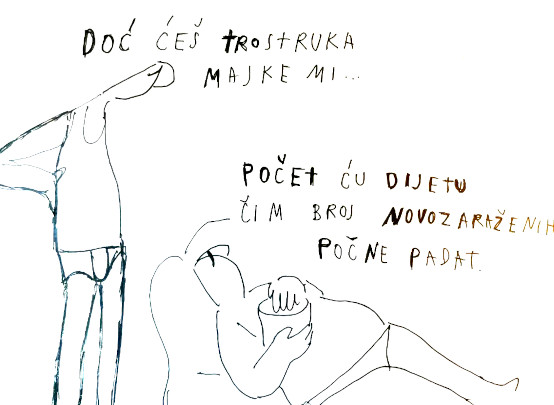 DOĆ ĆEŠ TROSTRUKA
MAJKE MI...
POČET ĆU DIJETU
ČIM BROJ NOVOZARAŽENIH
POČNE PADAT.